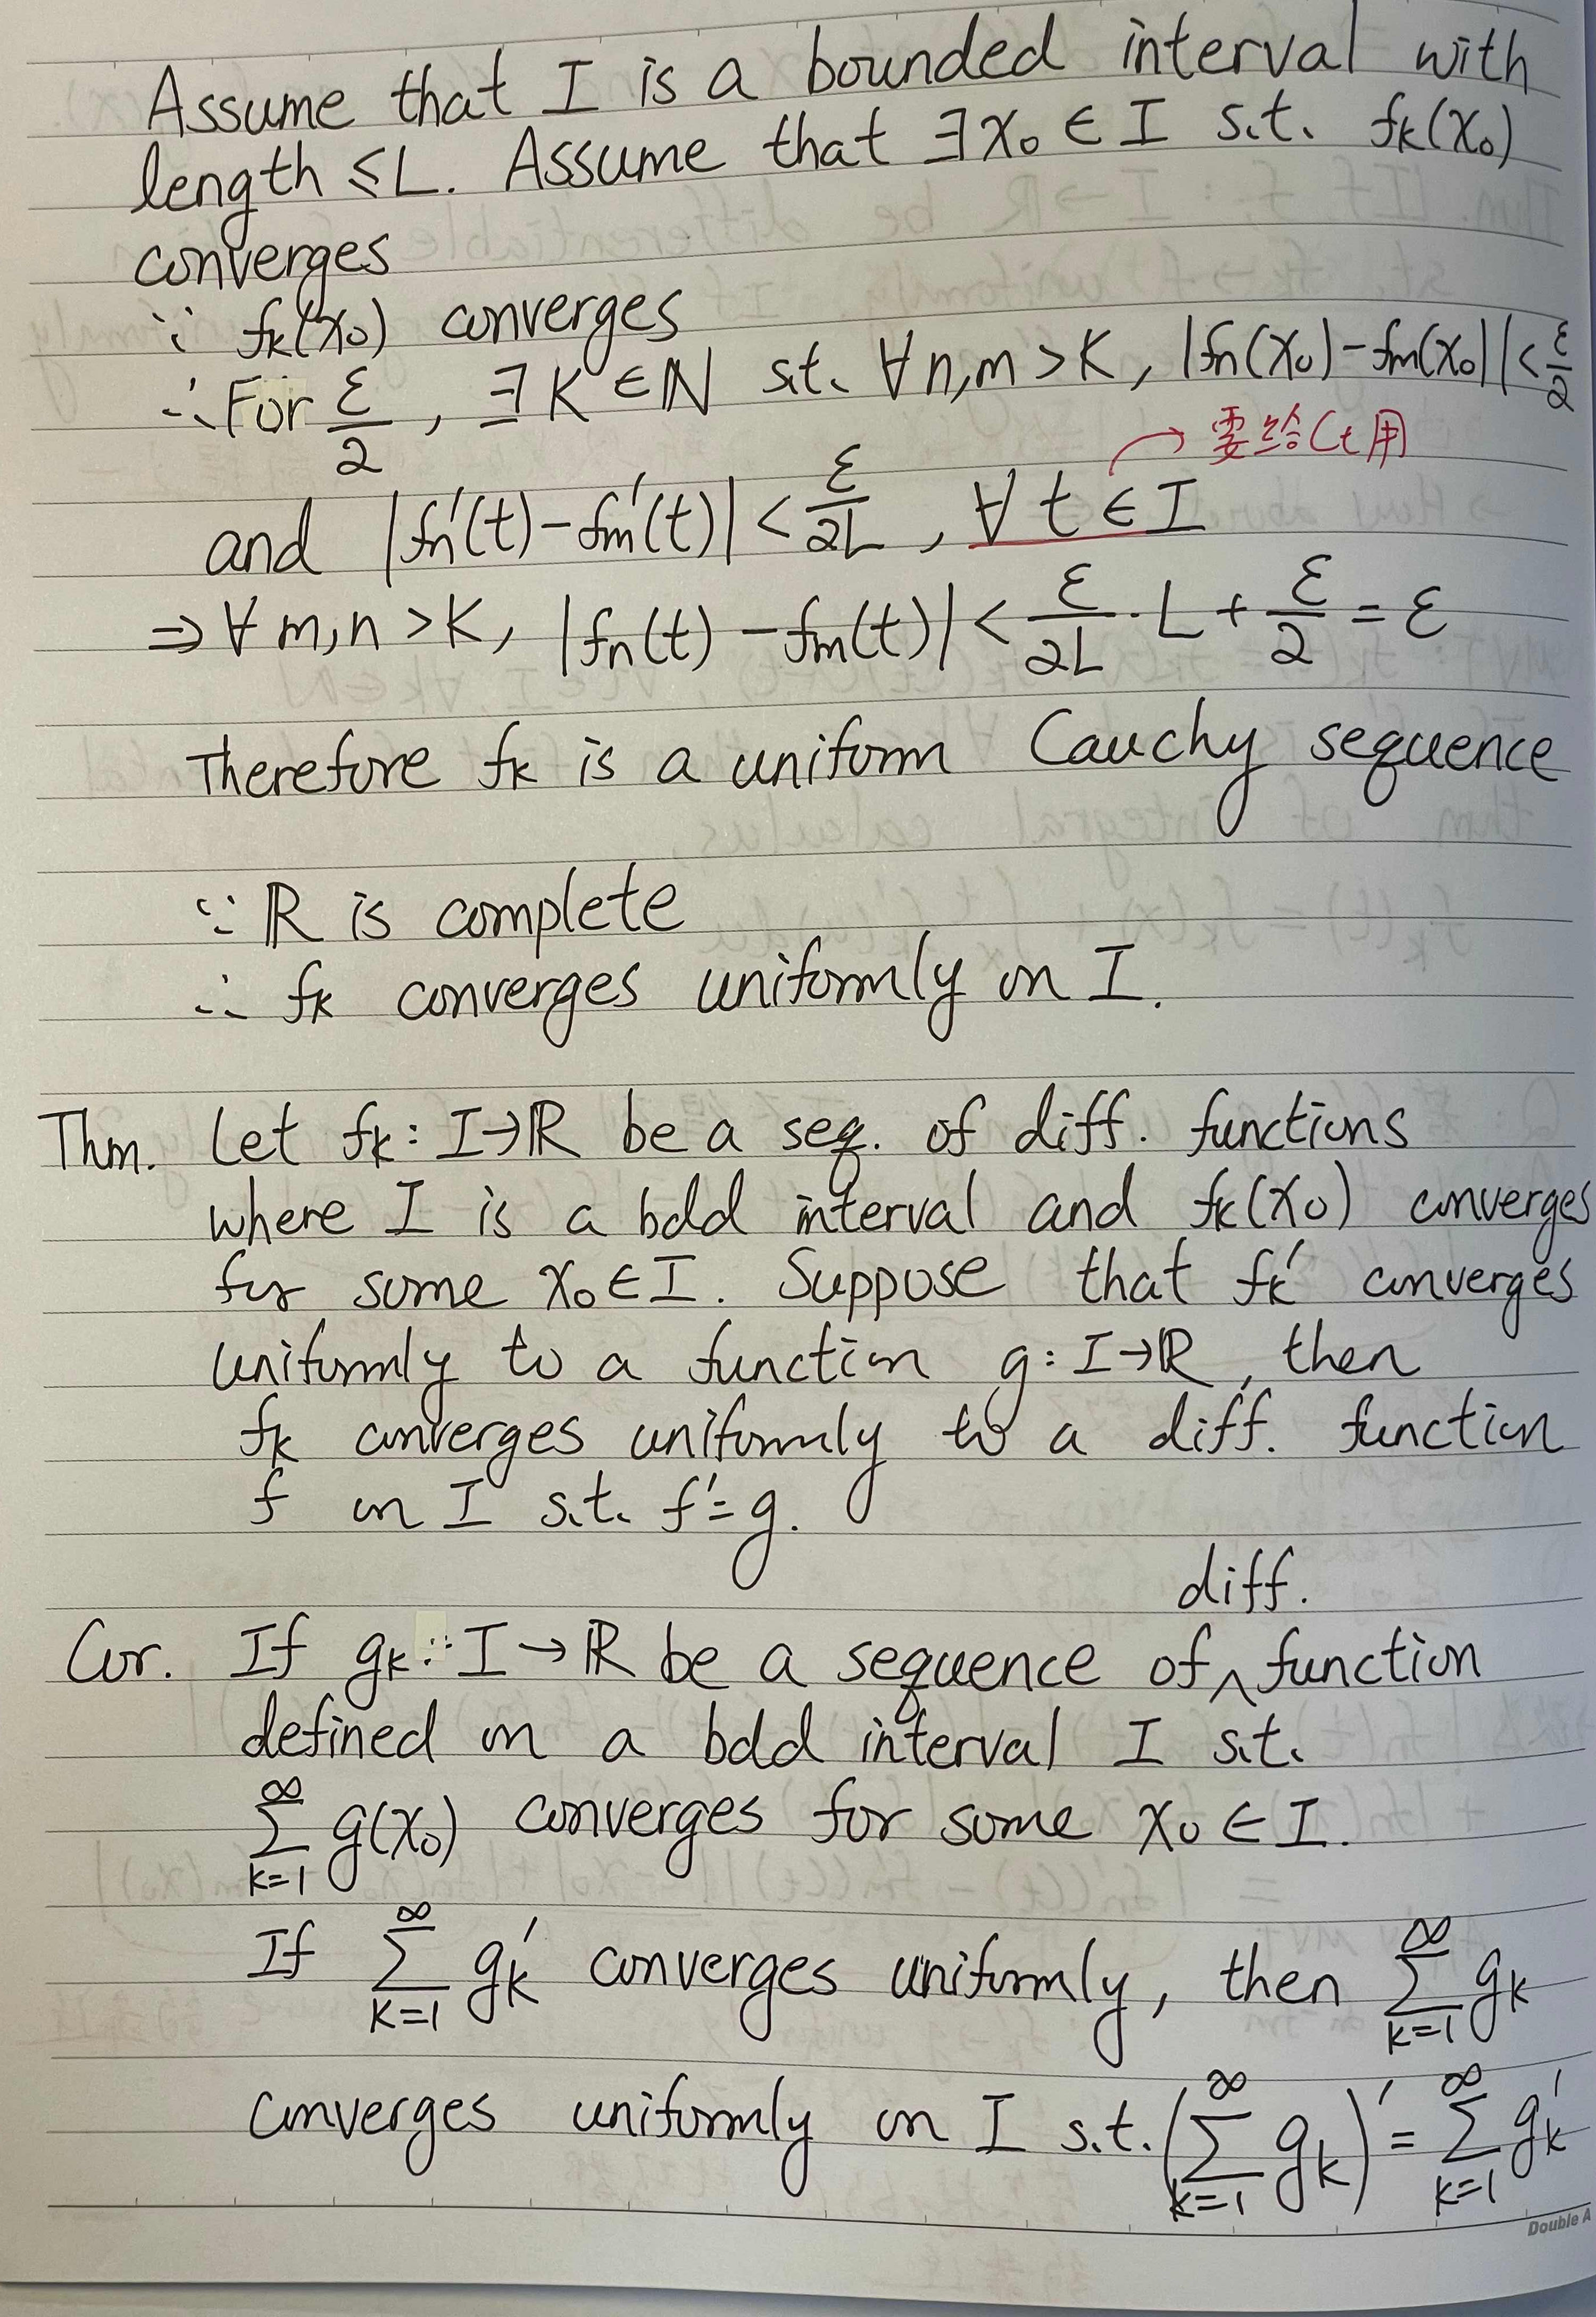 Assume that I is a bounded interval with
length ≤ L. Assume that ∃x₀ ∈ I s.t. fₖ(x₀)
converges
∵ fₖ(x₀) converges
∴ For ε/2, ∃ K ∈ ℕ s.t. ∀ n,m > K, |fₙ(x₀) - fₘ(x₀)| < ε/2
→ 要給Ct用
and |fₙ'(t) - fₘ'(t)| < ε/2L, ∀ t ∈ I
⇒ ∀ m,n > K, |fₙ(t) - fₘ(t)| < ε/2L · L + ε/2 = ε
Therefore fₖ is a uniform Cauchy sequence
∵ ℝ is complete
∴ fₖ converges uniformly on I.
Thm. Let fₖ: I→ℝ be a seq. of diff. functions
where I is a bdd interval and fₖ(x₀) converges
for some x₀ ∈ I. Suppose that fₖ' converges
uniformly to a function g: I→ℝ, then
fₖ converges uniformly to a diff. function
f on I s.t. f' = g.
diff.
Cor. If gₖ: I → ℝ be a sequence of ^ function
defined on a bdd interval I s.t.
∑_{k=1}^{∞} g(x₀) converges for some x₀ ∈ I.
If ∑_{k=1}^{∞} gₖ' converges uniformly, then ∑_{k=1}^{∞} gₖ
converges uniformly on I s.t. (∑_{k=1}^{∞} gₖ)' = ∑_{k=1}^{∞} gₖ'
Double A